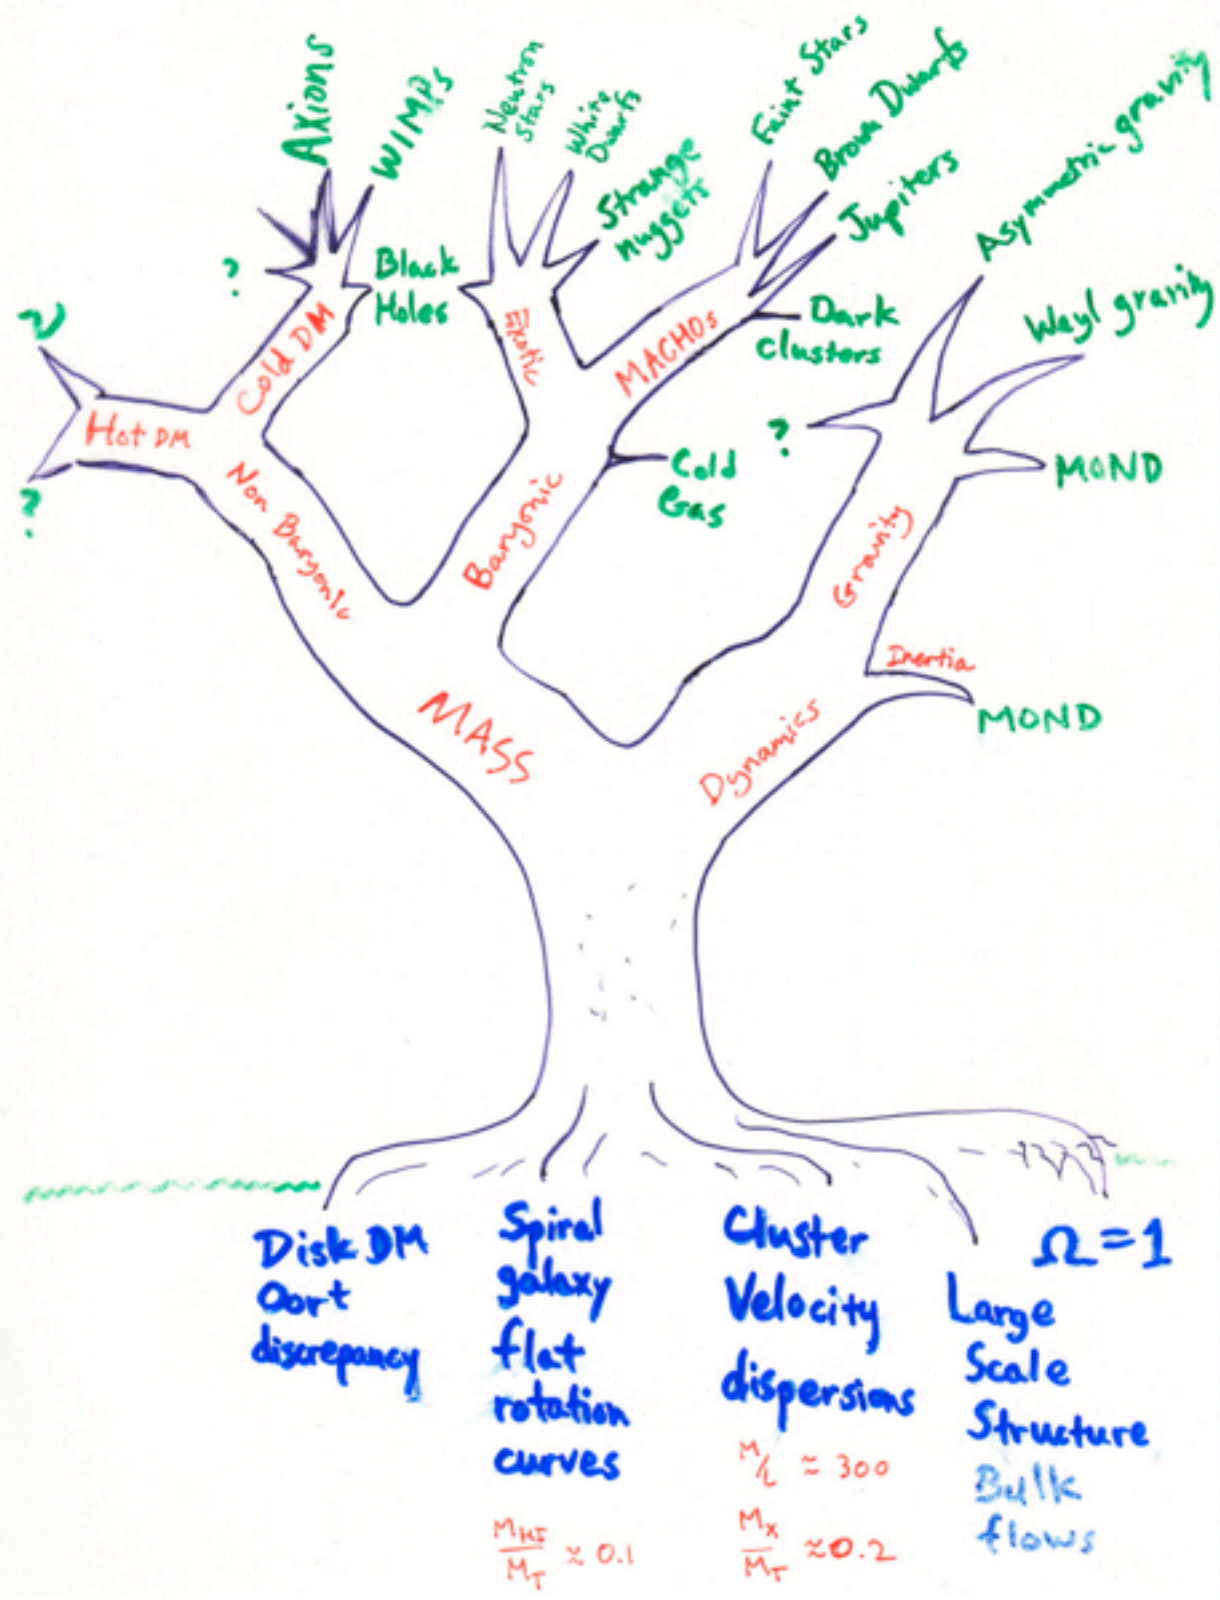 Axions
WIMPs
Neutron
Stars
White
Dwarfs
Strange
nuggets
Faint Stars
Brown Dwarfs
Jupiters
Asymmetric gravity
Weyl gravity
?
Black
Holes
Dark
clusters
ν
Cold DM
Exotic
MACHOs
Hot DM
?
?
Cold
Gas
MOND
Non Baryonic
Baryonic
Gravity
Inertia
MOND
MASS
Dynamics
Disk DM
Oort
discrepancy
Spiral
galaxy
flat
rotation
curves
M_HI/M_T ≈ 0.1
Cluster
Velocity
dispersions
M/L ≈ 300
M_X/M_T ≈ 0.2
Ω=1
Large
Scale
Structure
Bulk
flows